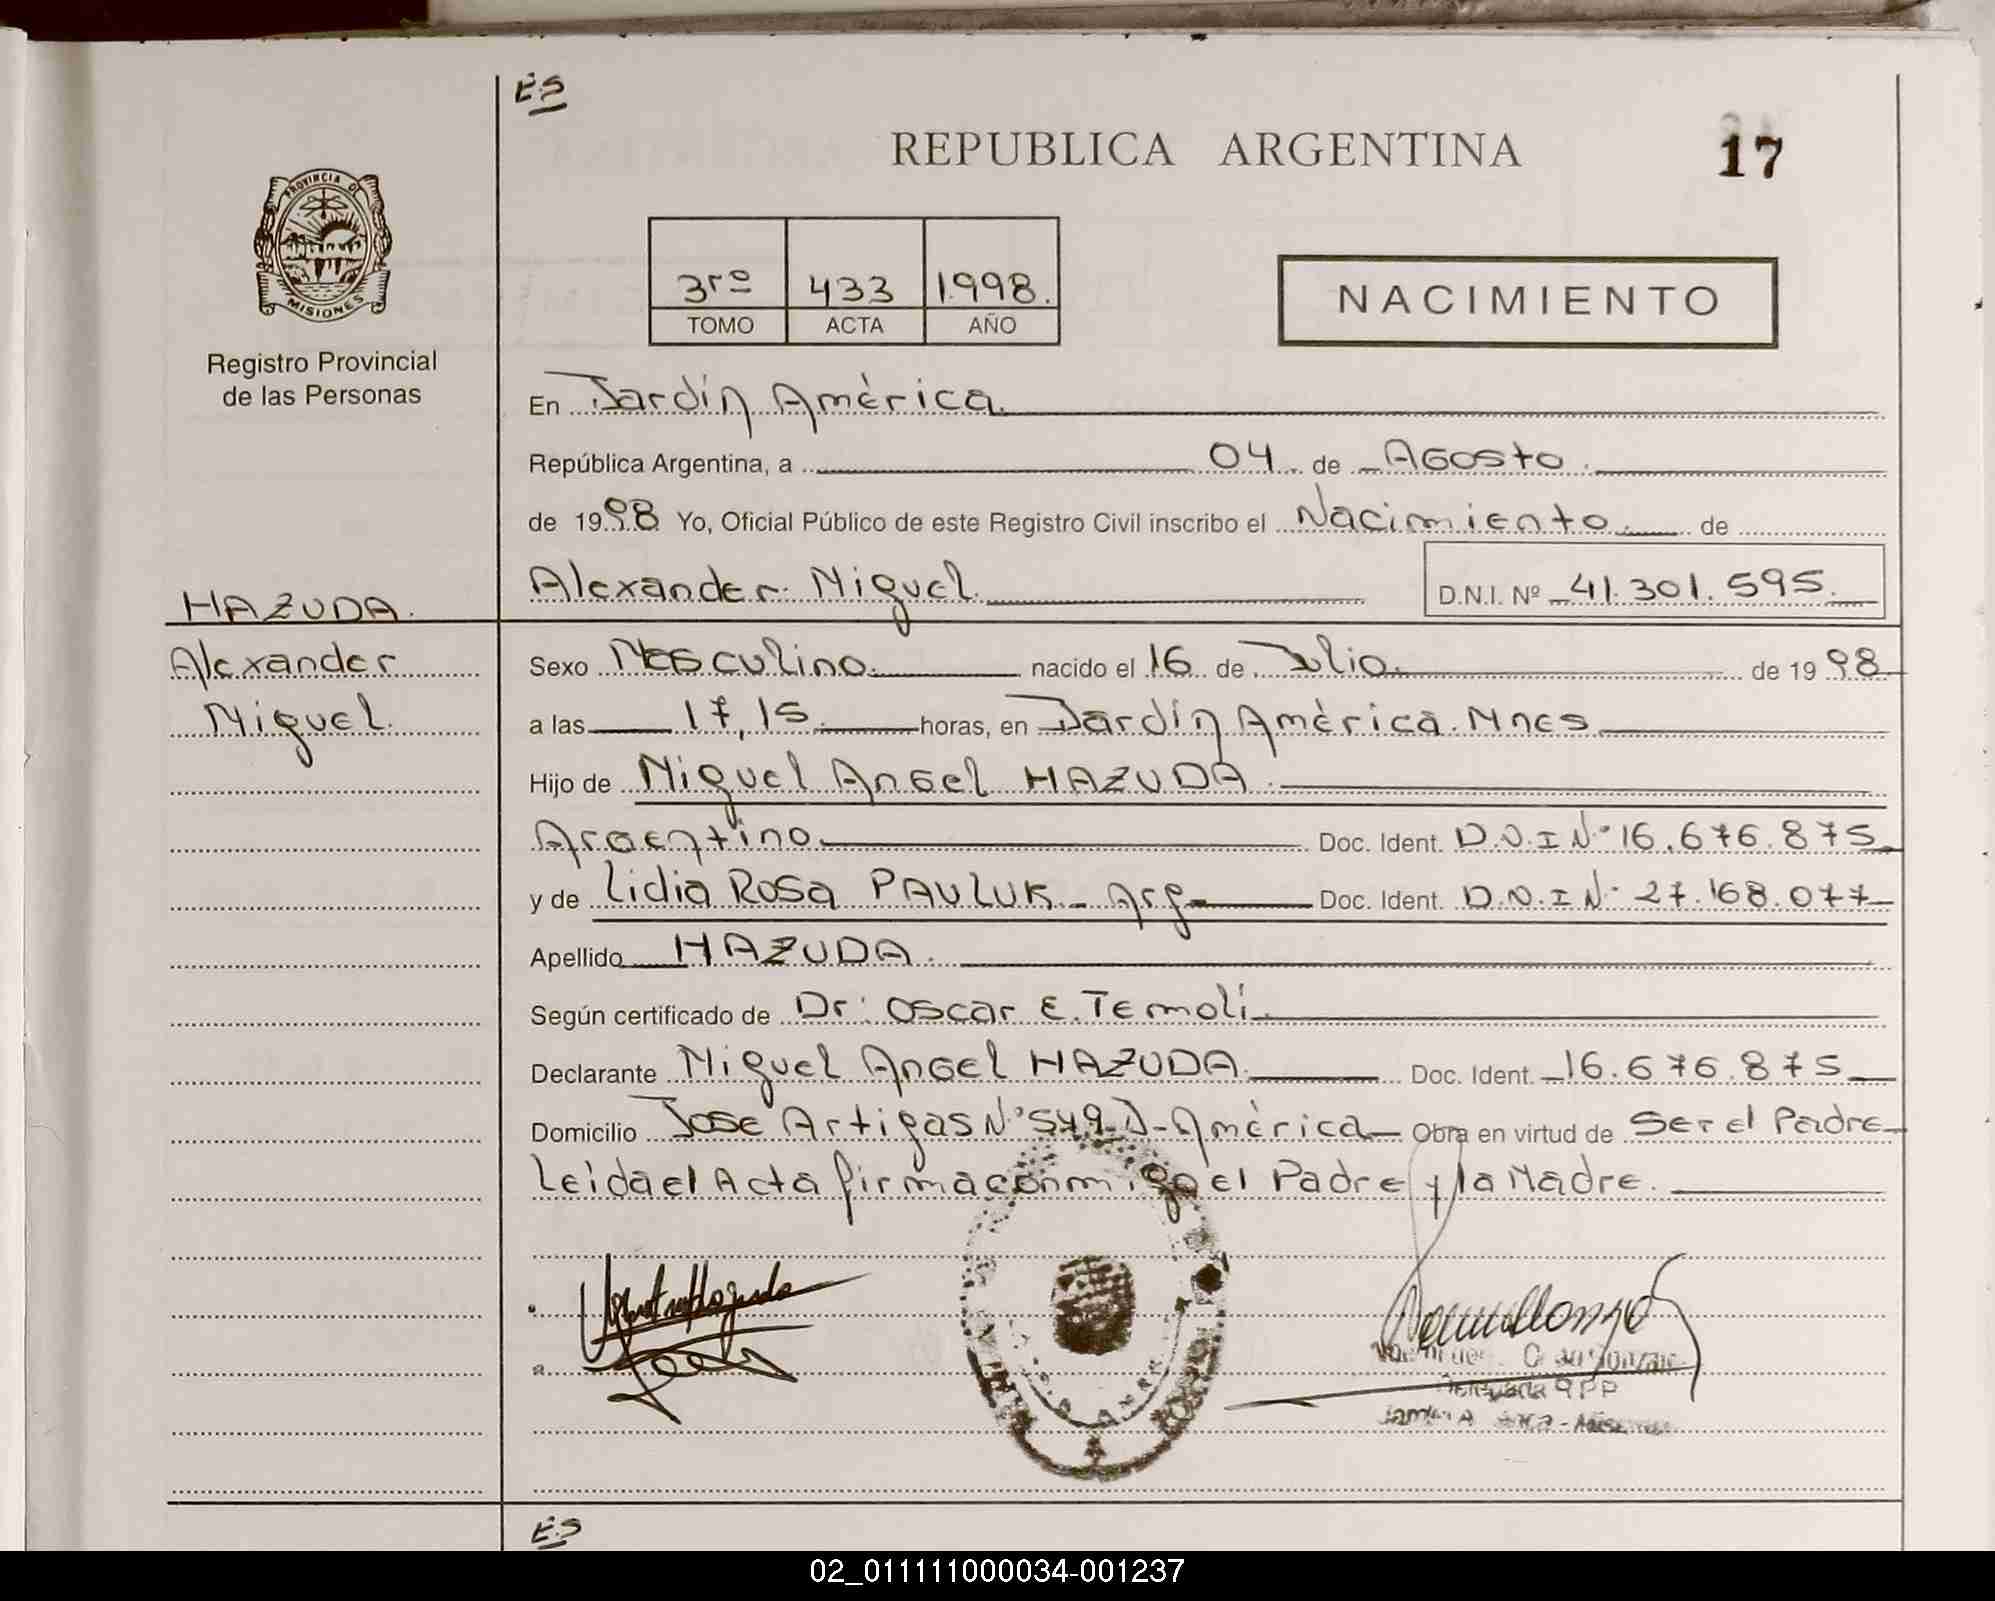 ES
REPUBLICA ARGENTINA
17
PROVINCIA DE
MISIONES
Registro Provincial
de las Personas
3ro 433 1998.
TOMO ACTA AÑO
NACIMIENTO
En Jardín América.
República Argentina, a 04 de Agosto.
de 1998 Yo, Oficial Público de este Registro Civil inscribo el Nacimiento. de
Alexander Miguel. D.N.I. Nº 41.301.595.
HAZUDA.
Alexander
Miguel.
Sexo Masculino. nacido el 16 de Julio. de 1998
a las 17,15. horas, en Jardín América. Mnes
Hijo de Miguel Angel HAZUDA.
Argentino. Doc. Ident. D.N.I Nº 16.676.875
y de Lidia Rosa PAULUK - Arg. Doc. Ident. D.N.I Nº 27.168.077
Apellido HAZUDA.
Según certificado de Dr: Oscar E. Temolí.
Declarante Miguel Angel HAZUDA. Doc. Ident. 16.676.875
Domicilio Jose Artigas Nº 549 J-América Obra en virtud de Ser el Padre
Leida el Acta firma conmigo el Padre y la Madre.
ES
02_011111000034-001237